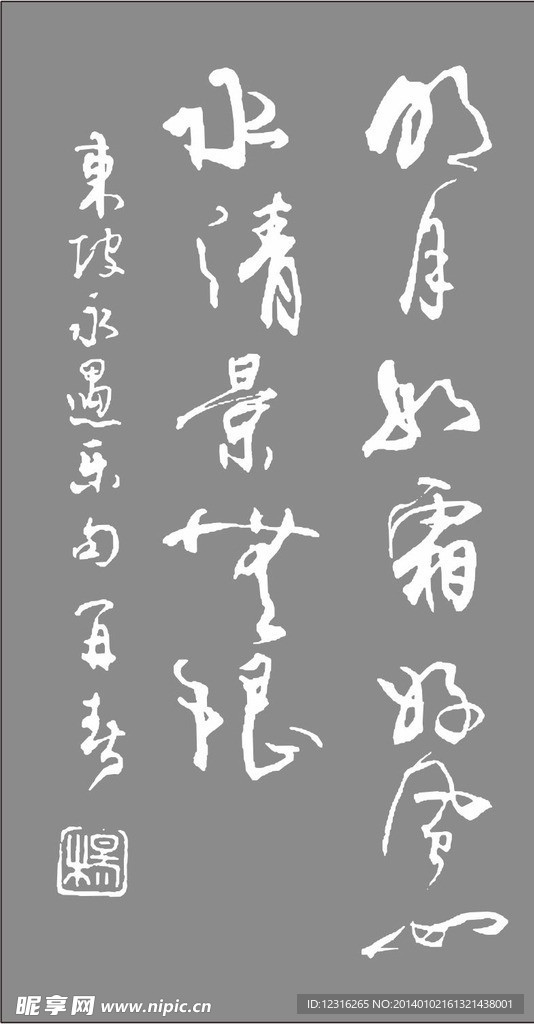 明月如霜好風如
水清景無限
東坡永遇乐句
昵享网 www.nipic.cn
ID:12316265 NO:20140102161321438001